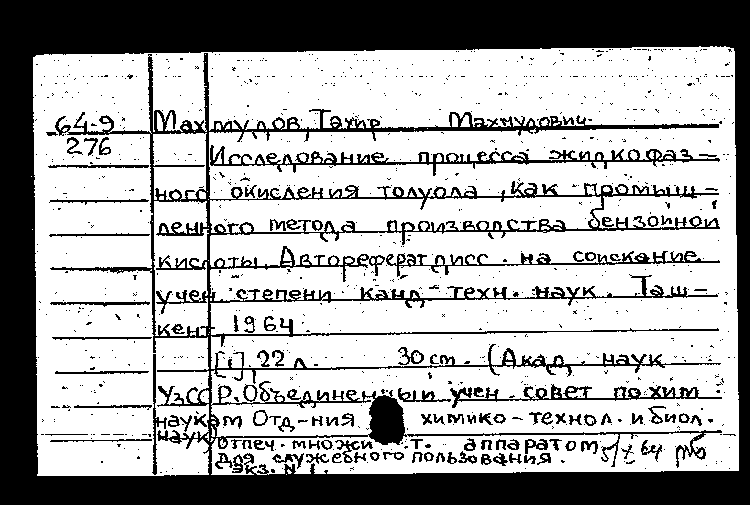 64-9 Махмудов, Тахир Махмудович.
276
Исследование процесса жидкофаз-
ного окисления толуола, как промыш-
ленного метода производства бензойной
кислоты. Автореферат дисс. на соискание
учен. степени канд. техн. наук. Таш-
кент, 1964.
[1], 22 л. 30 см. (Акад. наук
УзССР. Объединенный учен. совет по хим.
наукам Отд-ния химико-технол. и биол.
наук)
Отпеч. множи т. аппаратом
Для служебного пользования.
Экз. № 1.